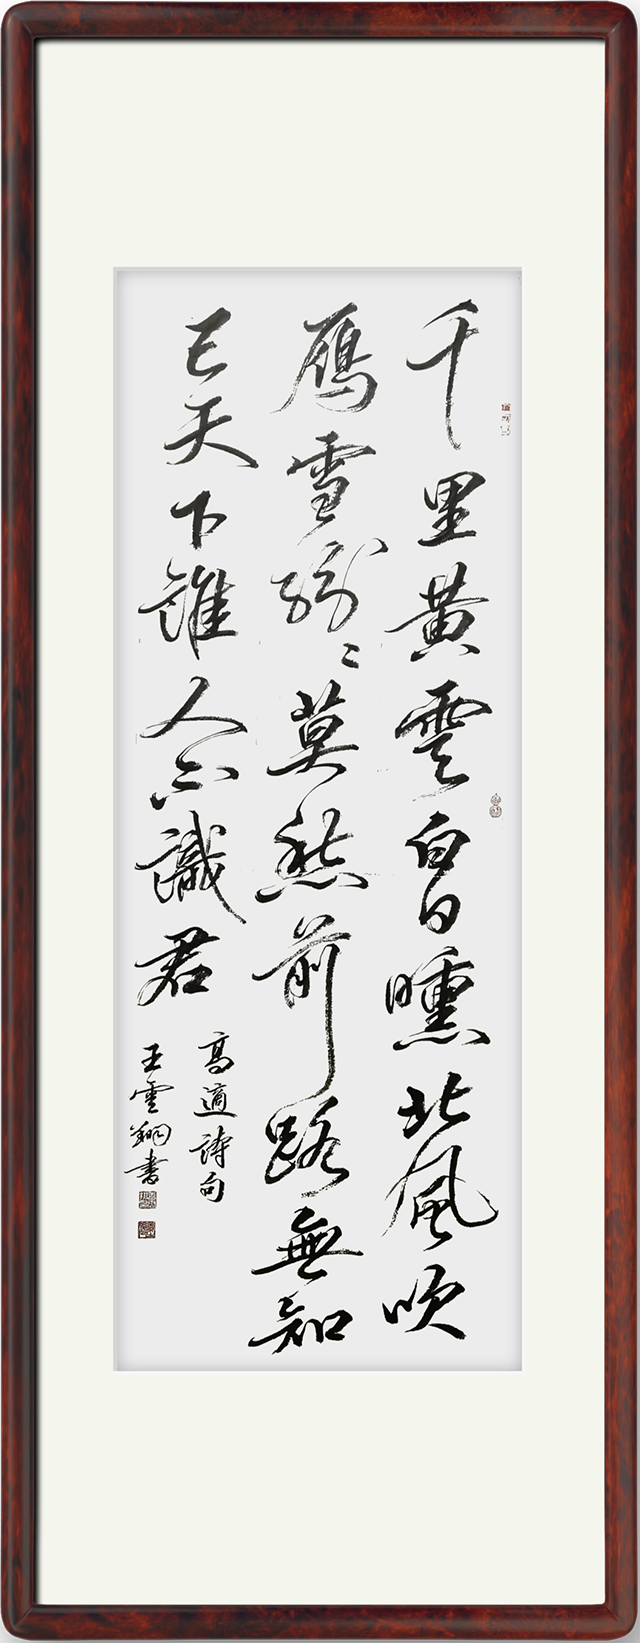 千里黃雲白日曛北風吹
鴈雪紛〻莫愁前路無知
己天下誰人不識君
高適詩句
王雲翔書